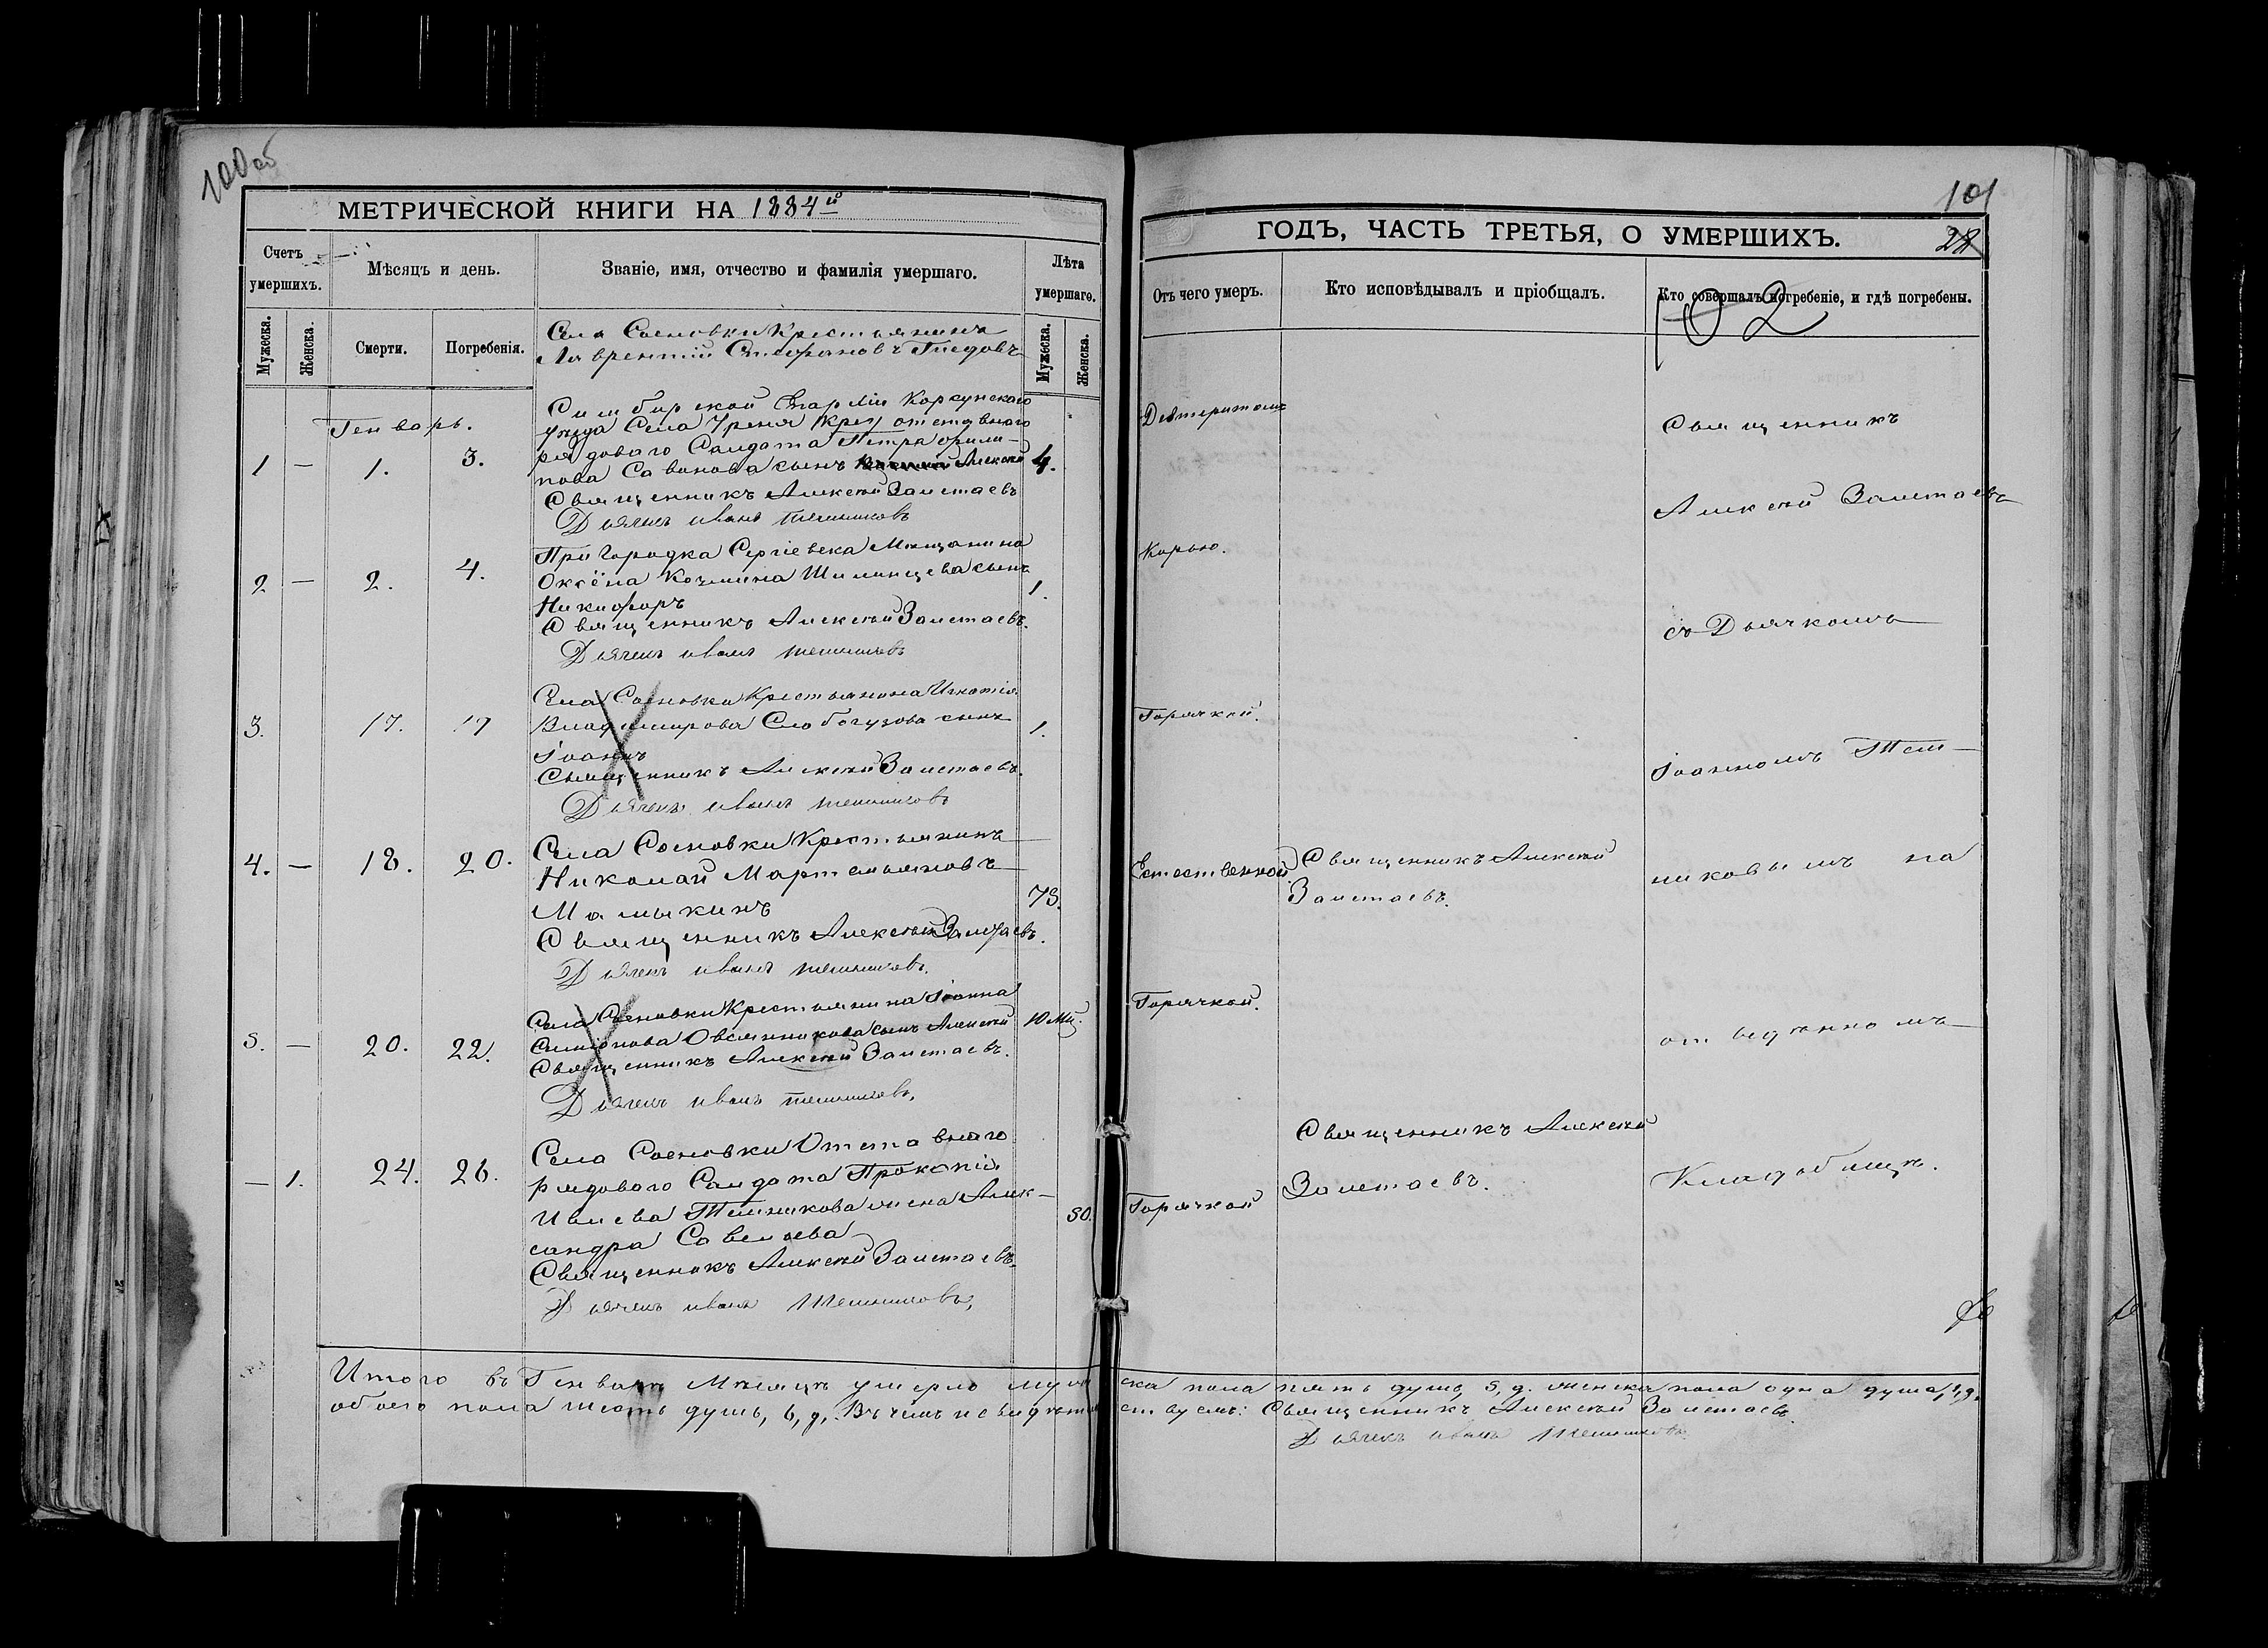 100 об
101
28
102
МЕТРИЧЕСКОЙ КНИГИ НА 1884й
ГОДЪ, ЧАСТЬ ТРЕТЬЯ, О УМЕРШИХЪ.
Счетъ умершихъ.
Мѣсяцъ и день.
Званіе, имя, отчество и фамилія умершаго.
Лѣта умершаго.
Отъ чего умеръ.
Кто исповѣдывалъ и пріобщалъ.
Кто совершалъ погребеніе, и гдѣ погребены.
Мужеска.
Женска.
Смерти.
Погребенія.
Мужеска.
Женска.
Села Сосновки Крестьянинъ
Лаврентій Стефановъ
Генварь.
1 — 1. 3.
Симбирской Корсунскаго
уѣзда Села Уреня отставнаго
рядоваго Салдата Петра Фили-
пова сынъ Алексѣй
4.
Священникъ Алексѣй Залетаевъ
Дьячекъ Иванъ Темниковъ
2 — 2. 4.
Пригородка Сергіевска Мѣщанина
Козмина сынъ
Никифоръ
1.
Священникъ Алексѣй Залетаевъ.
Дьячекъ Иванъ Темниковъ
Корью.
3. 17. 19
Села Сосновки Крестьянина Игнатія
Владимирова сынъ
Іоаннъ
1.
Священникъ Алексѣй Залетаевъ.
Дьячекъ Иванъ Темниковъ
Горячкой.
4. — 18. 20.
Села Сосновки Крестьянинъ
Николай Мартемьяновъ
Малыкинъ
75.
Священникъ Алексѣй Залетаевъ.
Дьячекъ Иванъ Темниковъ.
Естественной
Священникъ Алексѣй
Залетаевъ.
5. — 20. 22.
Села Сосновки Крестьянина Іоанна
Симіонова Овсянникова сынъ Алексѣй
10 мѣ.
Священникъ Алексѣй Залетаевъ.
Дьячекъ Иванъ Темниковъ,
Горячкой.
— 1. 24. 26.
Села Сосновки Отставнаго
рядоваго Салдата Прокопія
Темникова жена Алек-
сандра Савельева
50.
Священникъ Алексѣй Залетаевъ.
Дьячекъ Иванъ Темниковъ,
Горячкой
Священникъ Алексѣй
Залетаевъ.
Священникъ
Алексѣй Залетаевъ
съ Дьячкомъ
Іоанномъ Тем-
никовымъ на
отведенномъ
Кладбищѣ.
Итого въ Генварѣ Мѣсяцѣ умерло мужеска пола пять душъ, 5, д. женска пола одна душа, 1, д.
обоего пола шесть душъ, 6, д. Въ чемъ и свидѣтельствуемъ: Священникъ Алексѣй Залетаевъ.
Дьячекъ Иванъ Темниковъ